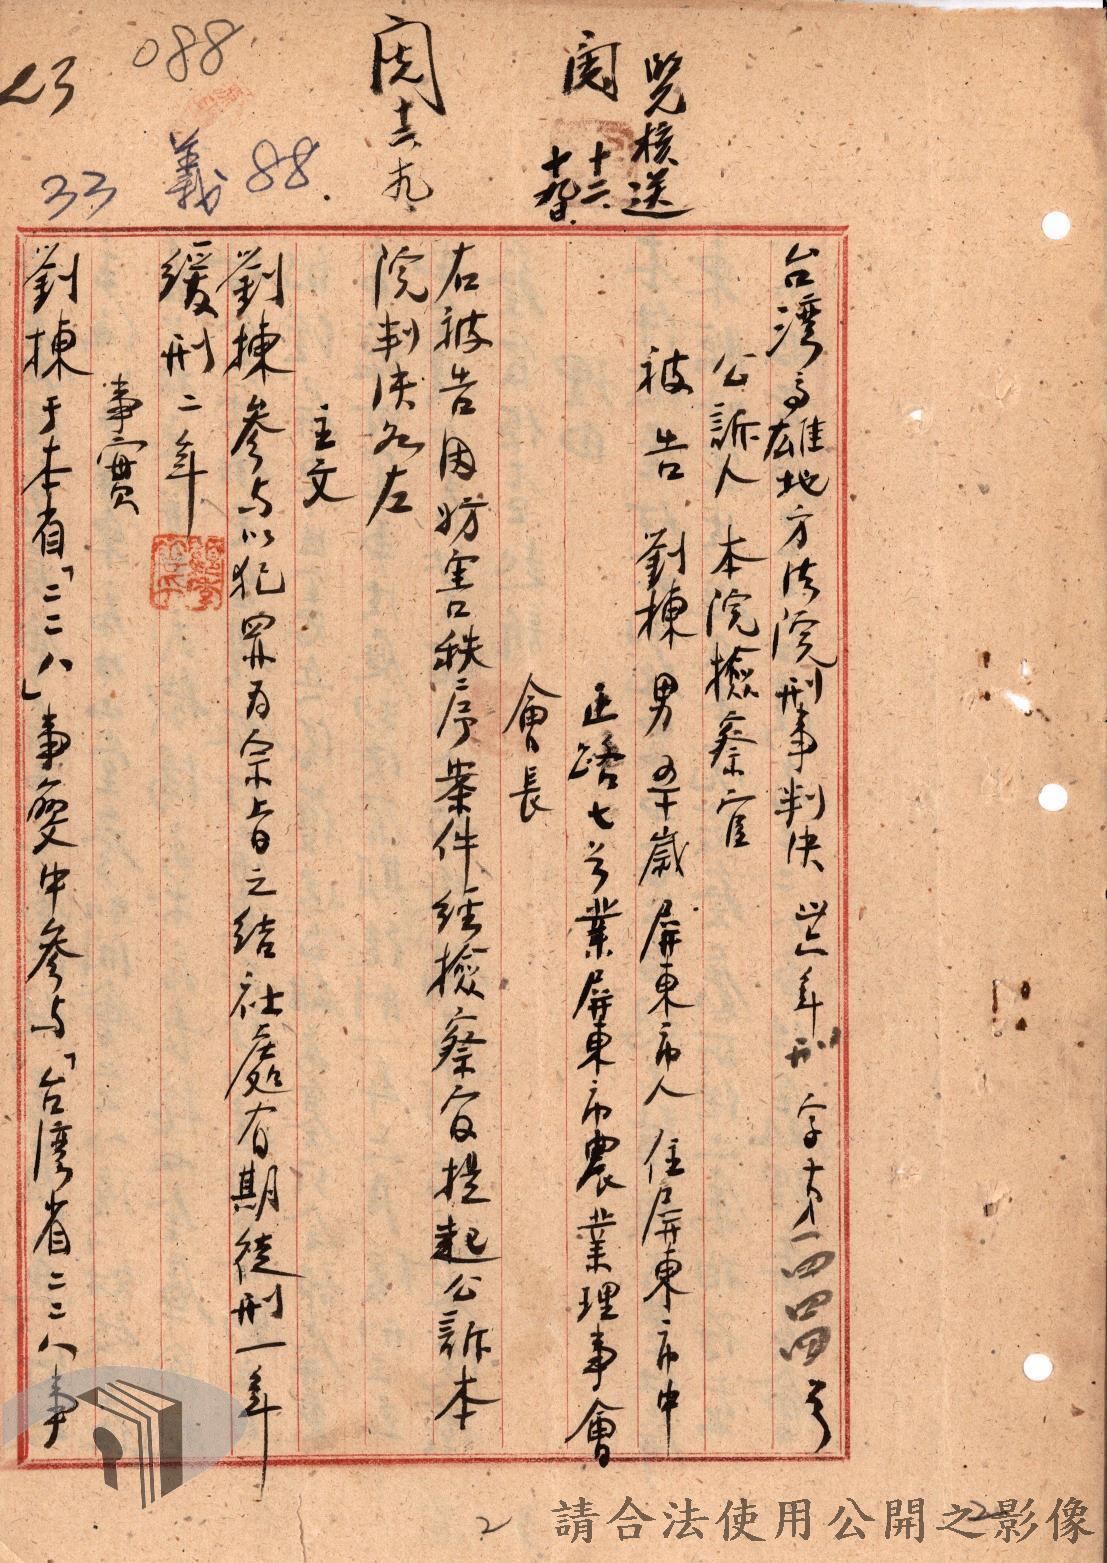 088
23
33
義88.
閱
十六九
閱
覽核送
十六
台灣高雄地方法院刑事判決 卅六年刑字第一四四四号
公訴人 本院檢察官
被告 劉棟 男 五十歲 屏東市人 住屏東市中
正路七号業屏東市農業理事會
會長
右被告因妨害秩序案件經檢察官提起公訴本
院判決如左
主文
劉棟參与以犯罪為宗旨之結社處有期徒刑一年
緩刑二年
事實
劉棟于本省「二二八」事變中參与「台灣省二二八事
2
請合法使用公開之影像